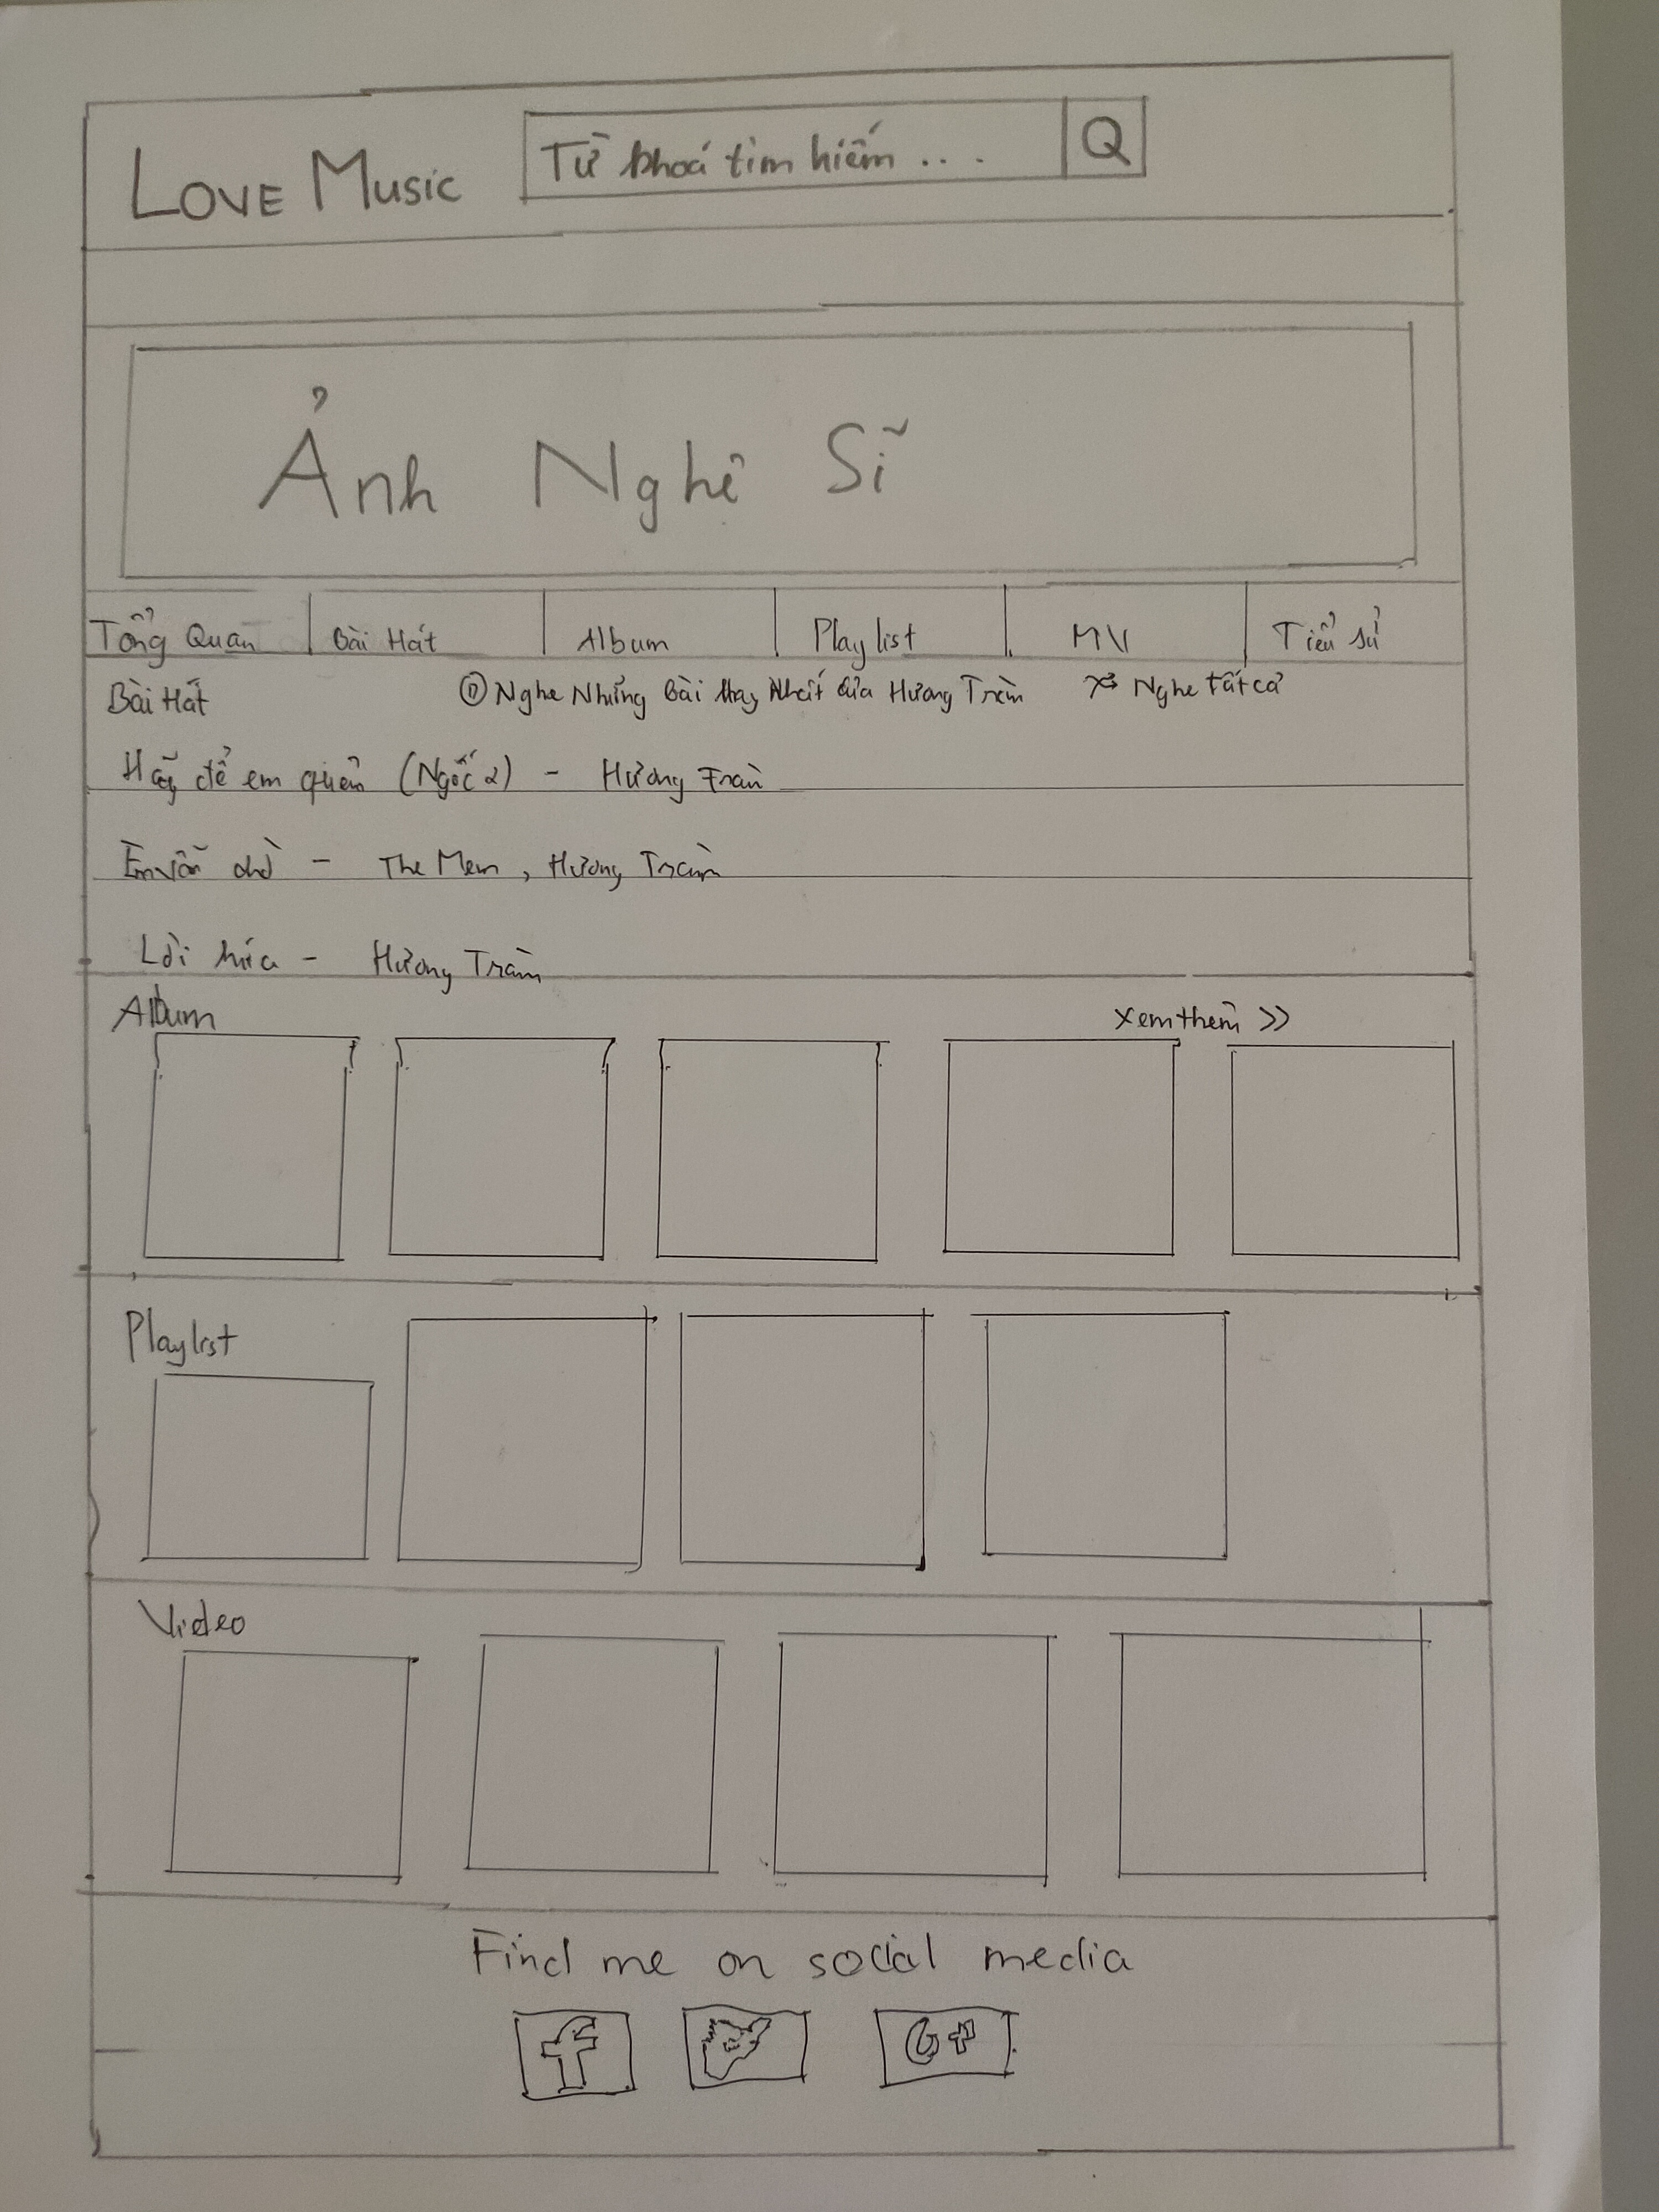 LOVE MUSIC
Từ khoá tìm kiếm ....
Q
Ảnh Nghệ Sĩ
Tổng Quan
Bài Hát
Album
Playlist
MV
Tiểu sử
Bài Hát
Nghe Những Bài Hay Nhất Của Hương Tràm
Nghe tất cả
Hãy để em quên (Ngốc 2) - Hương Tràm
Em vẫn chờ - The Men, Hương Tràm
Lời hứa - Hương Tràm
Album
Xem thêm >>
Playlist
Video
Find me on social media
f
G+